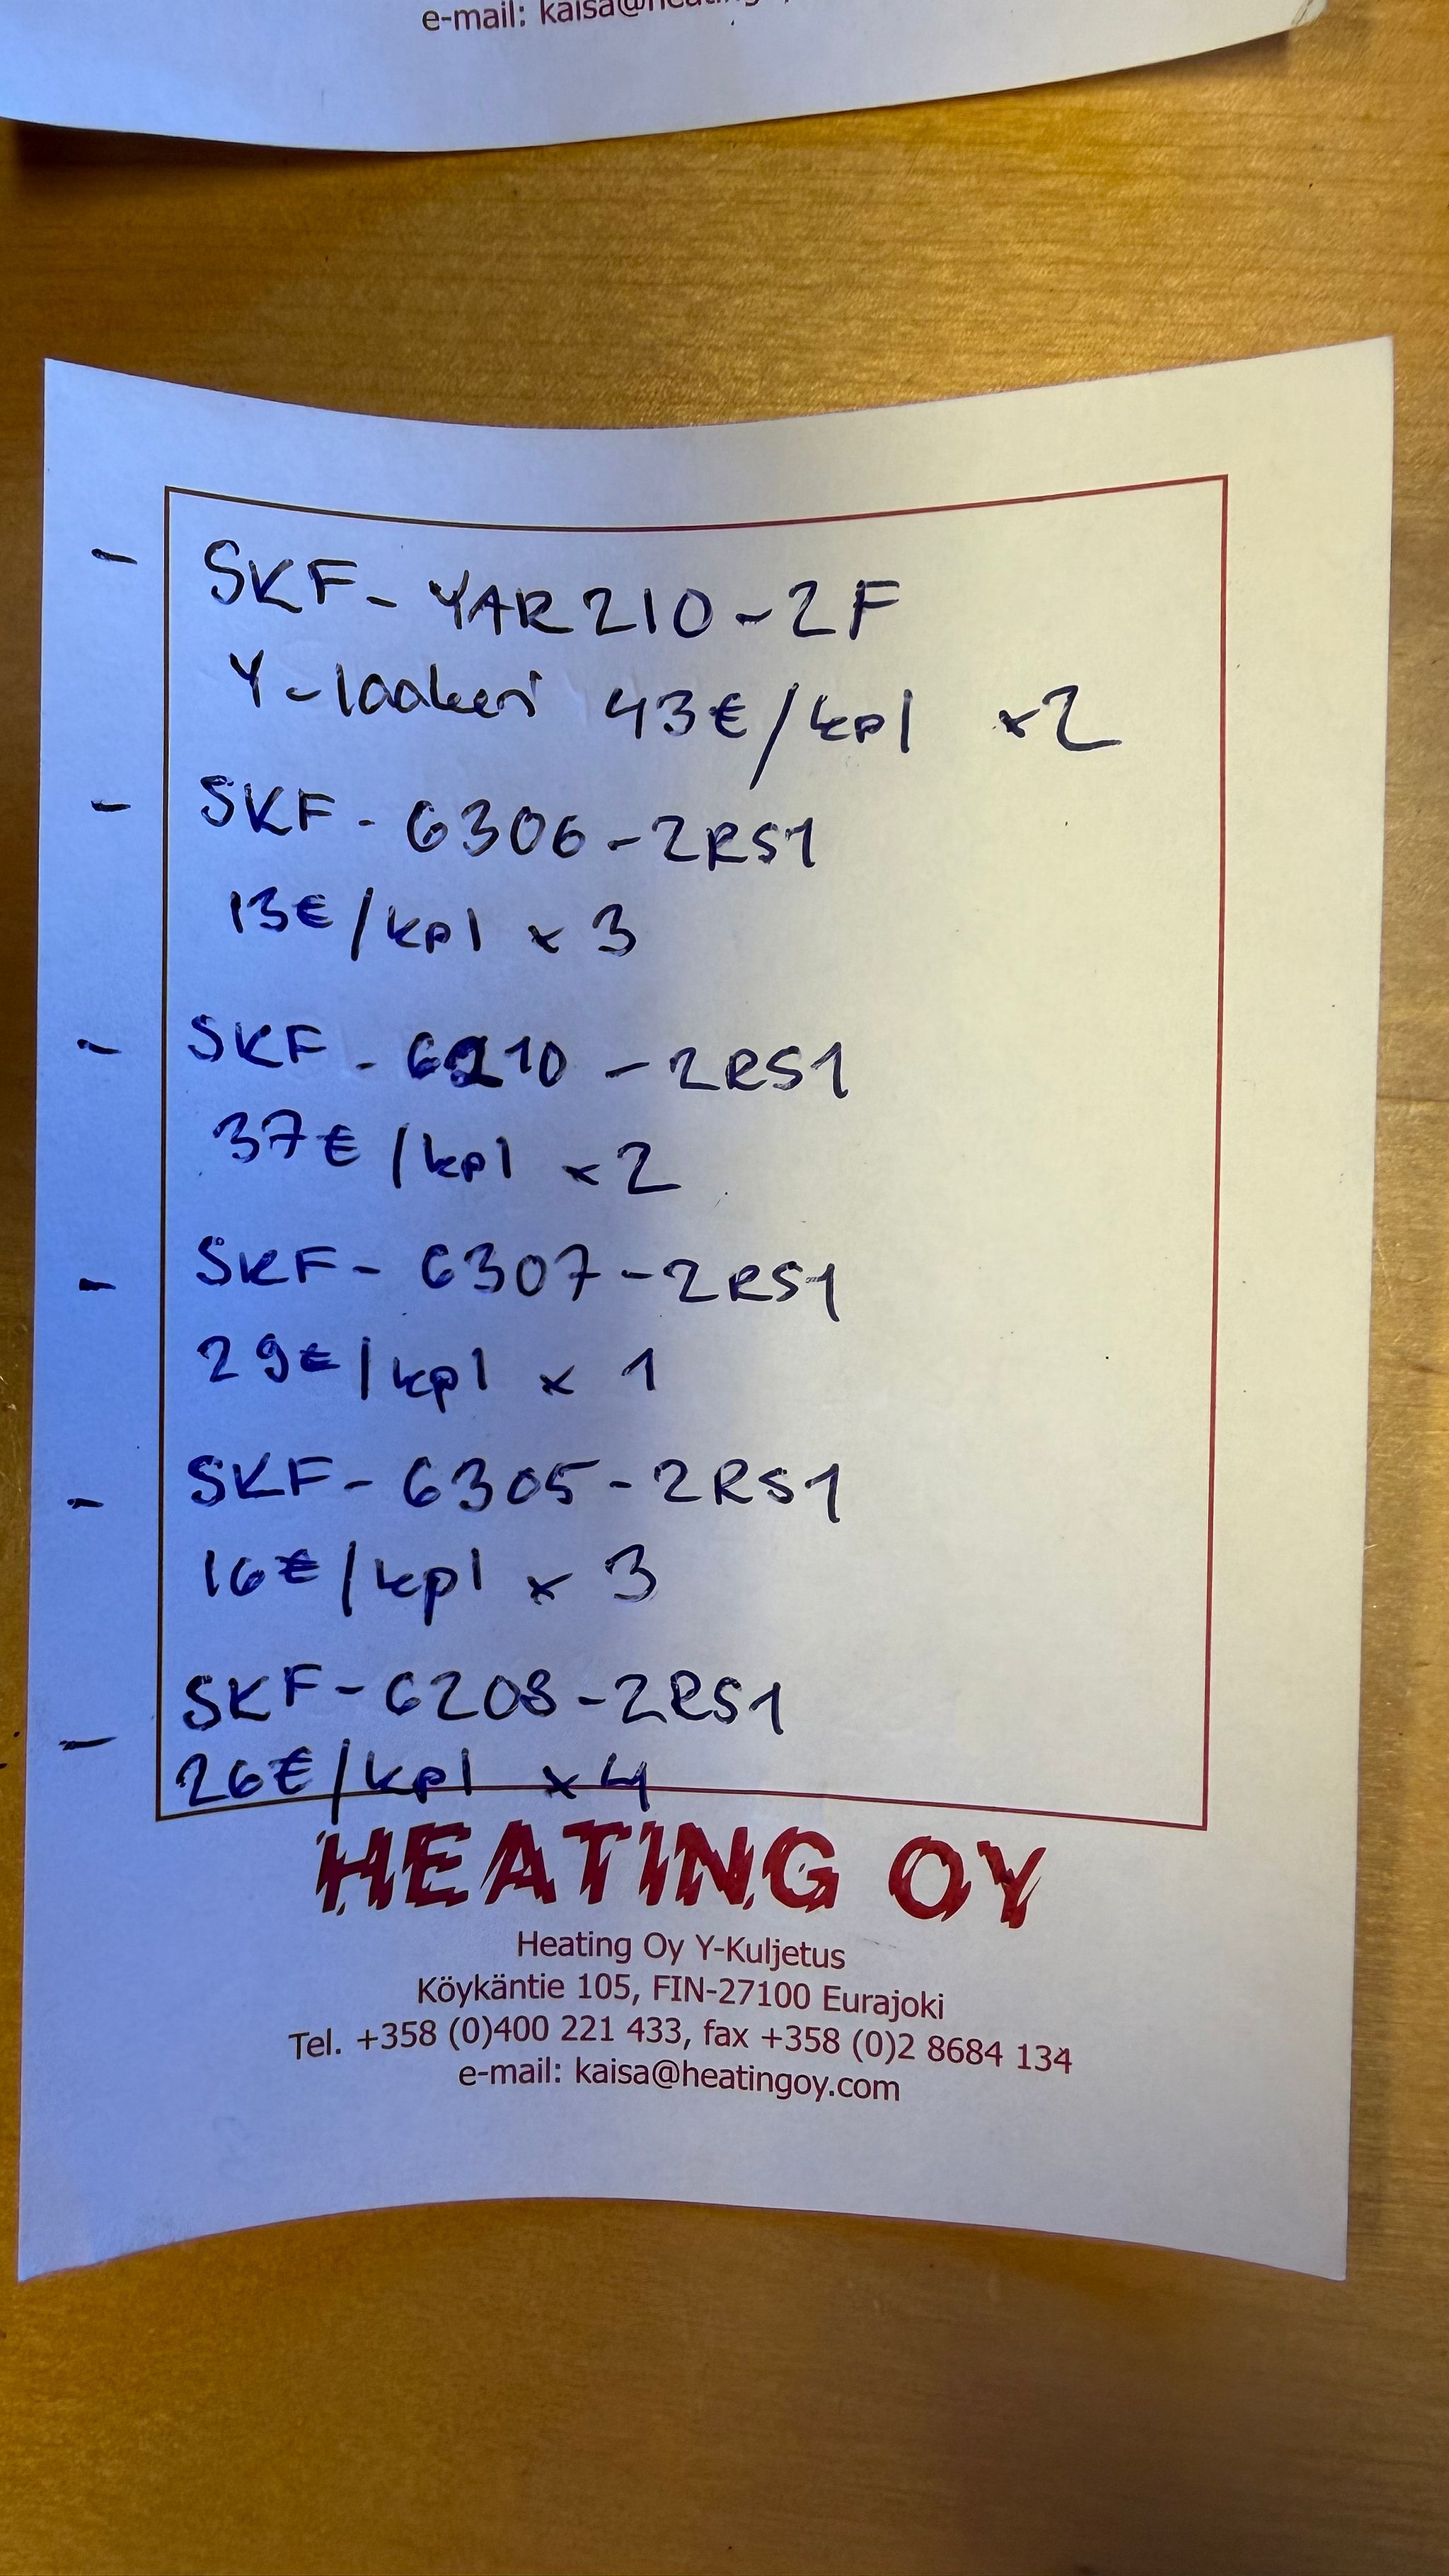 e-mail:
- SKF - YAR210-2F
Y-laakeri 43€/kpl x2
- SKF - 6306-2RS1
13€/kpl x 3
- SKF - 6210 - 2RS1
37€/kpl x2
- SKF - 6307-2RS1
29€/kpl x 1
- SKF - 6305-2RS1
16€/kpl x 3
- SKF-6208-2RS1
26€/kpl x4
HEATING OY
Heating Oy Y-Kuljetus
Köykäntie 105, FIN-27100 Eurajoki
Tel. +358 (0)400 221 433, fax +358 (0)2 8684 134
e-mail: kaisa@heatingoy.com